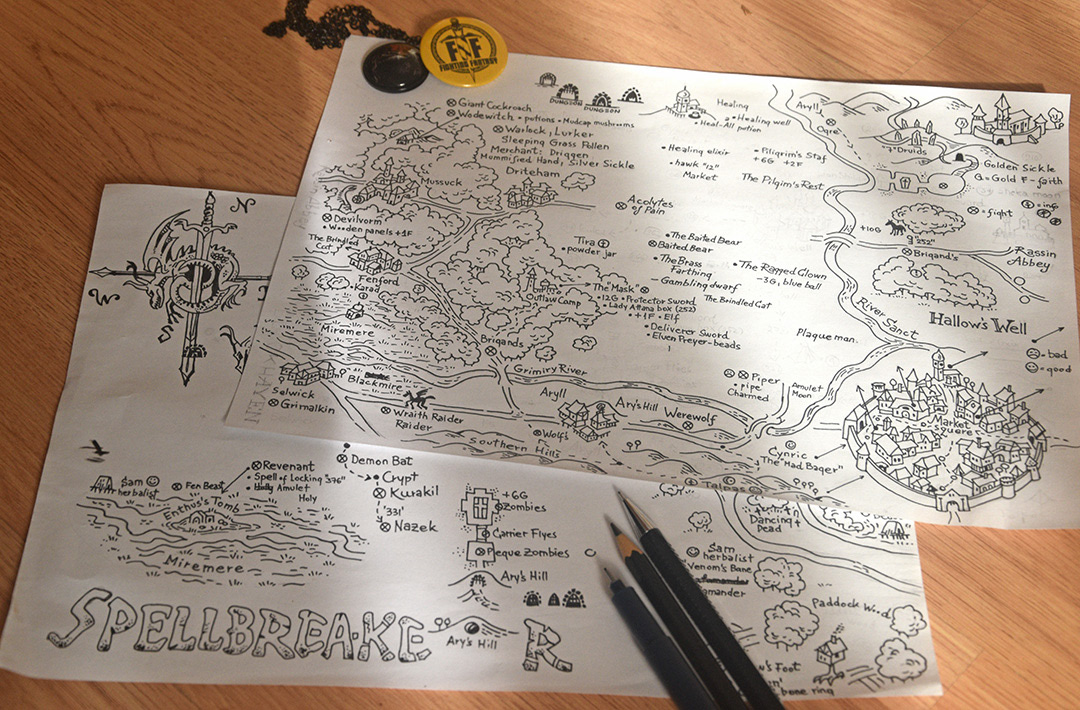 FNF
FIGHTING FANTASY
Giant Cockroach
Wodewitch • potions • Mudcap mushrooms
Warlock, Lurker
Sleeping Grass Pollen
Merchant: Driggen
Mummified Hand, Silver Sickle
Driteham
Mussuck
DUNGEON
DUNGEON
Healing
• Healing well
• Heal-All potion
• Healing elixir
• hawk "12"
Market
• Piligrim's Staf
+6G +2F
The Pilgim's Rest
Aryll
Ogre
"7" Druids
Golden Sickle
G=Gold F-faith
• info
• fight
+10G
9 "252"
Brigand's
Rassin
Abbey
River Sanct
Hallow's Well
- bad
- good
Market
square
Devilvorm
• Wooden panels +1F
The Brindled
Cat
Fenford
Karad
Miremere
Acolytes
of Pain
Tira
• powder jar
• The Baited Bear
Baited Bear
• The Brass
Farthing
Gambling dwarf
• The Ragged Clown
-3G, blue ball
The Brindled Cat
Outlaw Camp
"The Mask"
• 12G • Protector Sword
• Lady Attana box (252)
• +1F • Elf
• Deliverer Sword
• Elven Preyer-beads
Plaque man.
Brigands
Grimiry River
Blackmire
Selwick
Grimalkin
Wraith Raider
Raider
Aryll
Ary's Hill
Werewolf
Wolf's
Southern Hills
Piper
• pipe
Charmed
Amulet
Moon
Cynric
The "Mad Bager"
Talpas
N
W
Sam
herbalist
Fen Beast
Revenant
• Spell of Locking "376"
• Amulet
Holy
Enthus's Tomb
Miremere
Demon Bat
Crypt
Kwakil
'331'
Nazek
+6G
Zombies
Carrier Flyes
Pleque Zombies
Ary's Hill
Ary's Hill
SPELLBREAKE
R
Dancing
Dead
Sam
herbalist
Venom's Bane
Paddock Wood
's Foot
bone ring